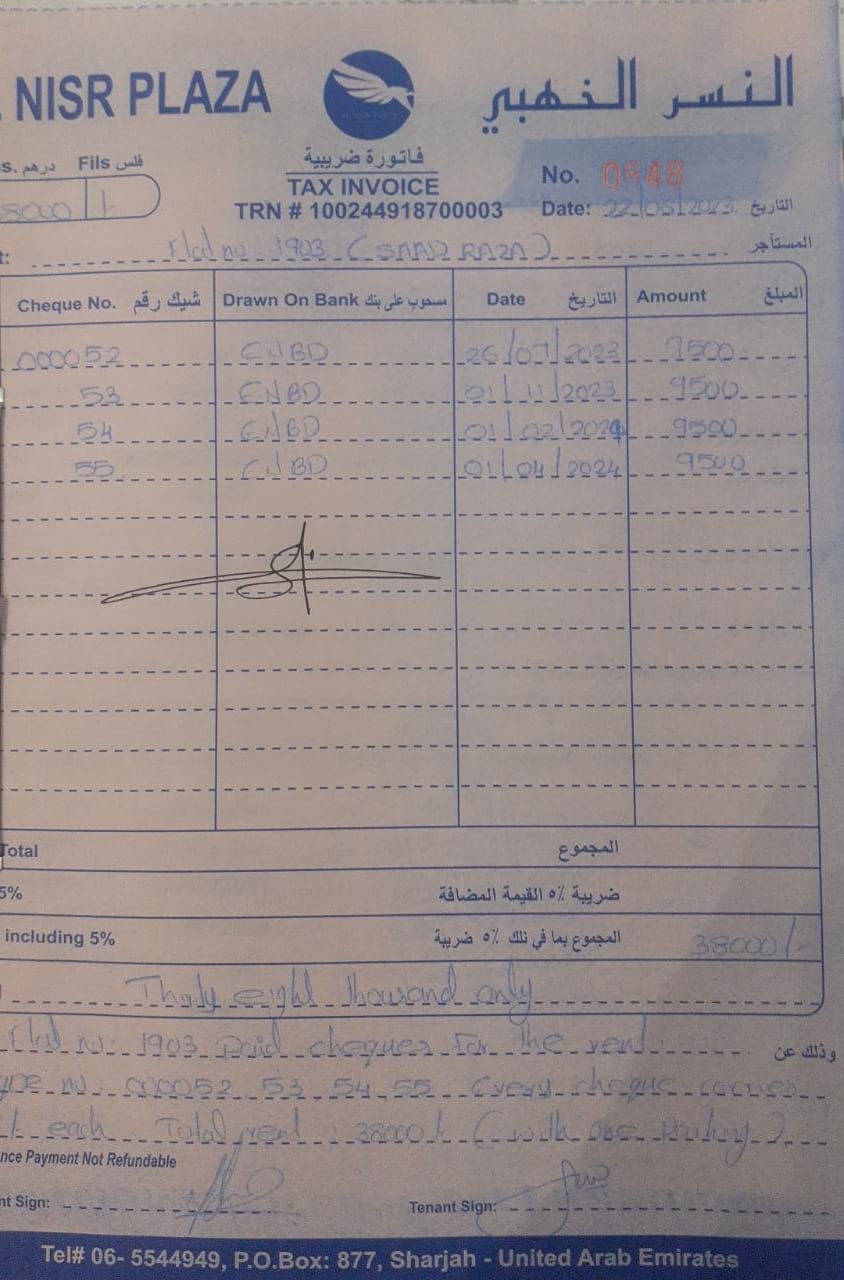 NISR PLAZA
النسر الذهبي
فاتورة ضريبية
TAX INVOICE
TRN # 100244918700003
s. درهم Fils فلس
38000 /-
No. 0848
Date: 22/06/2023 التاريخ
t: Flat no. 1903 (SAAD RAZA) المستأجر
Cheque No. شيك رقم Drawn On Bank مسحوب على بنك Date التاريخ Amount المبلغ
000052 ENBD 26/07/2023 9500
53 ENBD 01/11/2023 9500
54 ENBD 01/02/2024 9500
55 ENBD 01/04/2024 9500
Total المجموع
5% ضريبة ٥٪ القيمة المضافة
including 5% المجموع بما في ذلك ٥٪ ضريبة 38000/-
Thirty eight thousand only
Flat no: 1903 paid cheques for the rent. وذلك عن
no: 000052, 53, 54, 55 Every cheque carries
each. Total rent: 38000/- (with one Parking).
nce Payment Not Refundable
nt Sign: Tenant Sign:
Tel# 06- 5544949, P.O.Box: 877, Sharjah - United Arab Emirates